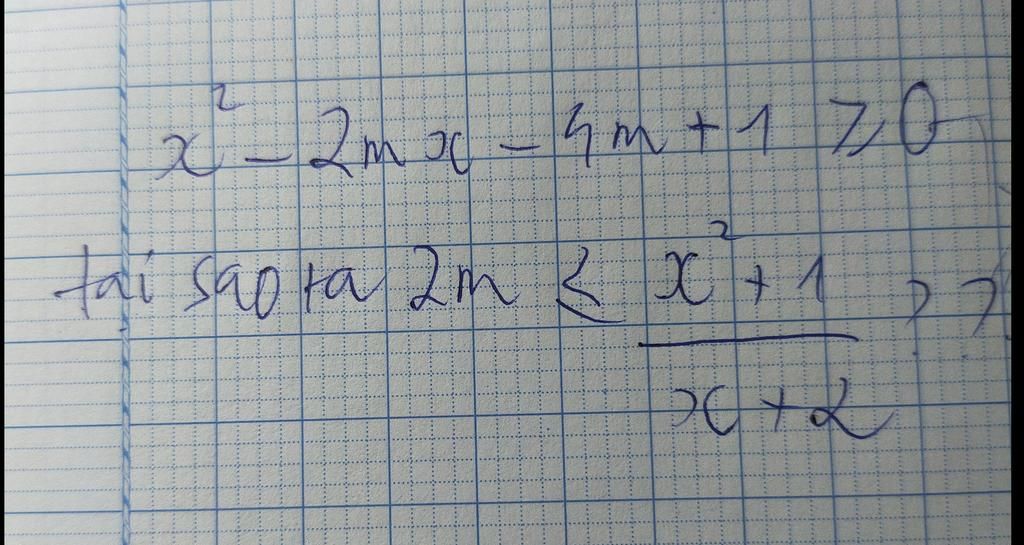 x² - 2mx - 4m + 1 ≥ 0
tai sao ra 2m ≤ x² + 1 ??
x + 2